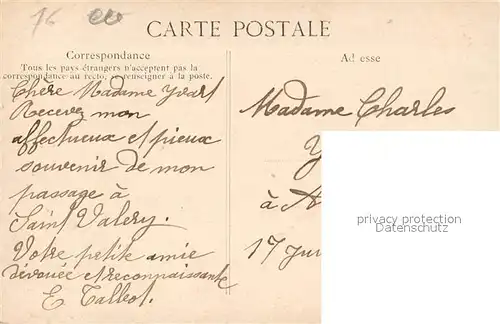 76
CARTE POSTALE
Correspondance
Tous les pays étrangers n'acceptent pas la
correspondance au recto, se renseigner à la poste.
Chère Madame Yvart
Recevez mon
affectueux et pieux
souvenir de mon
passage à
Saint Valery.
Votre petite amie
dévouée et reconnaissante
E Tallest.
Ad esse
Madame Charles
Y
à A
17 Jui
privacy protection
Datenschutz